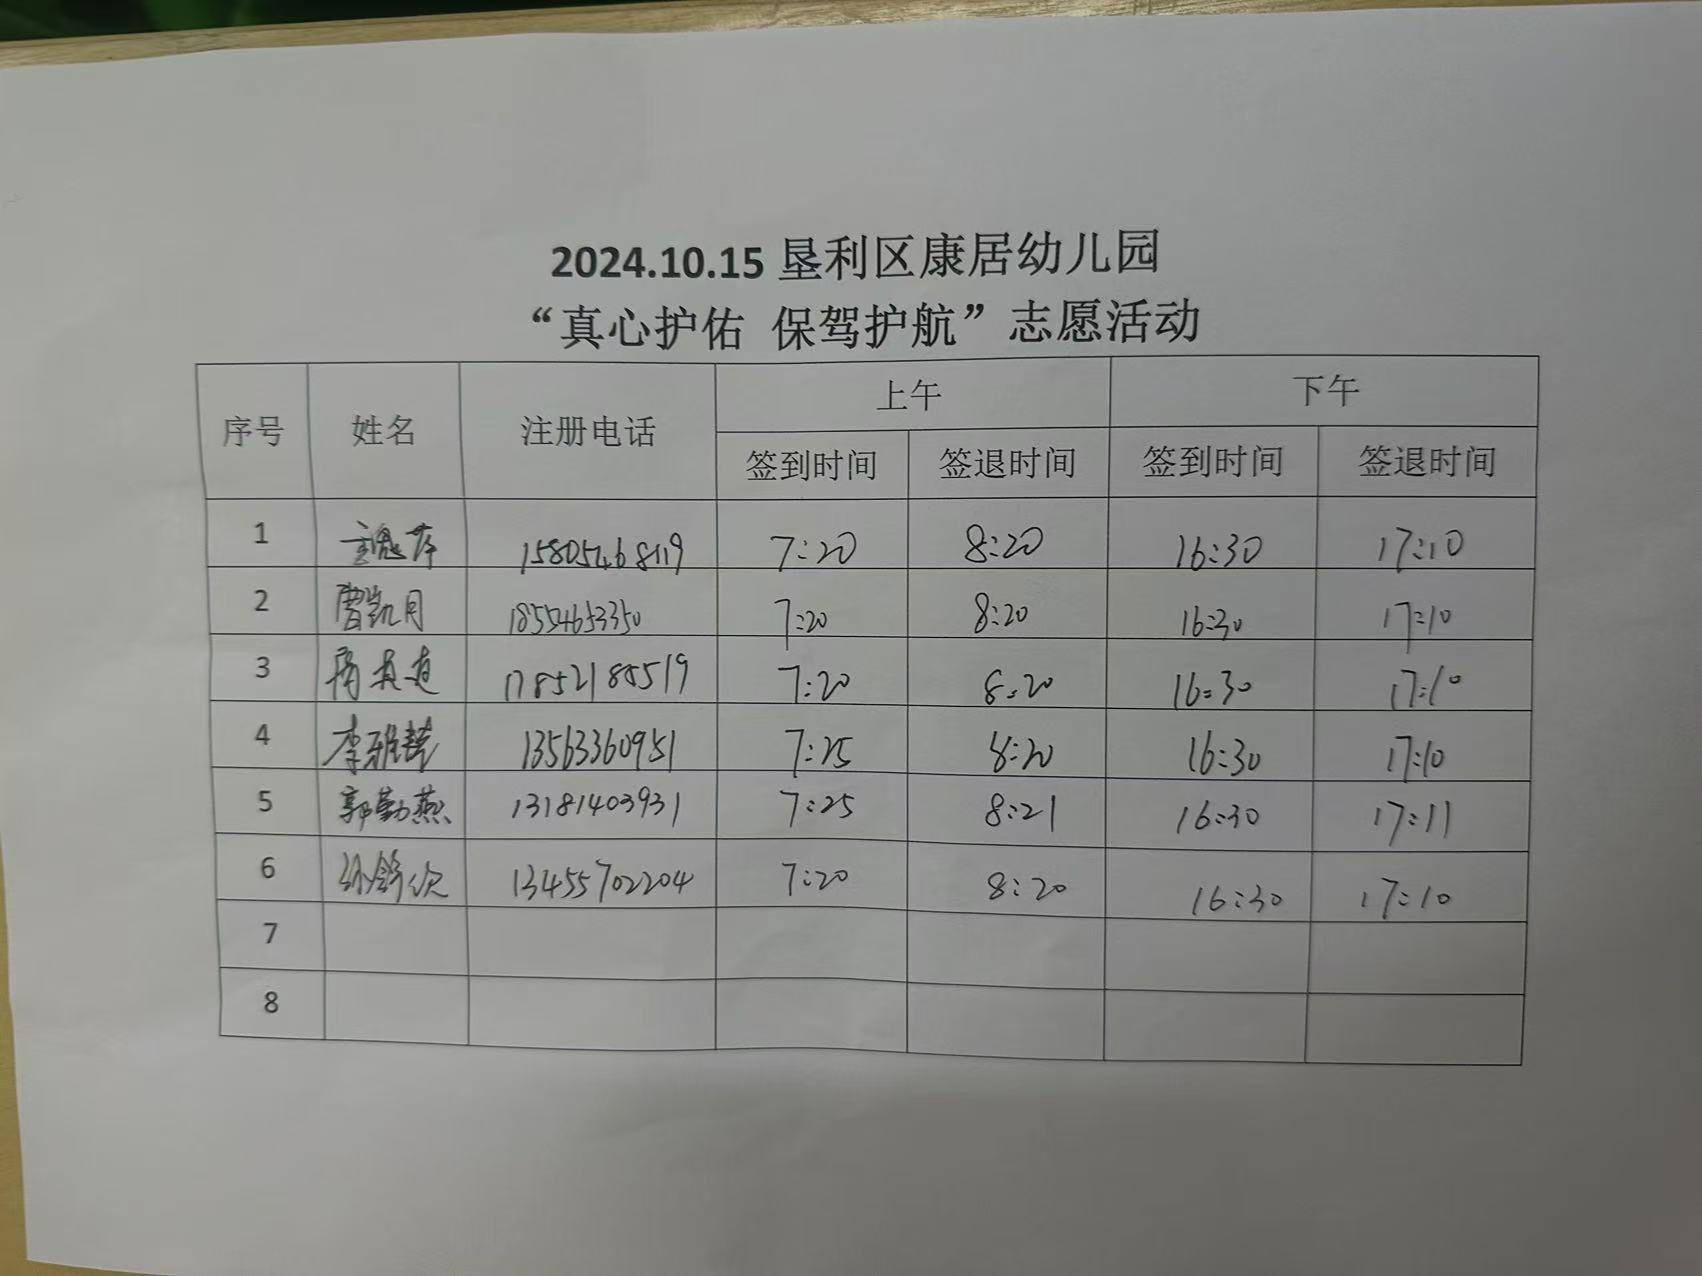 2024.10.15 垦利区康居幼儿园
“真心护佑 保驾护航”志愿活动
序号 姓名 注册电话 上午 下午
签到时间 签退时间 签到时间 签退时间
1 7:20 8:20 16:30 17:10
2 曹凯月 18554653350 7:20 8:20 16:30 17:10
3 17852185519 7:20 8:20 16:30 17:10
4 李雅楚 13563360951 7:25 8:20 16:30 17:10
5 郭勤燕 13181403931 7:25 8:21 16:30 17:11
6 13455702204 7:20 8:20 16:30 17:10
7
8